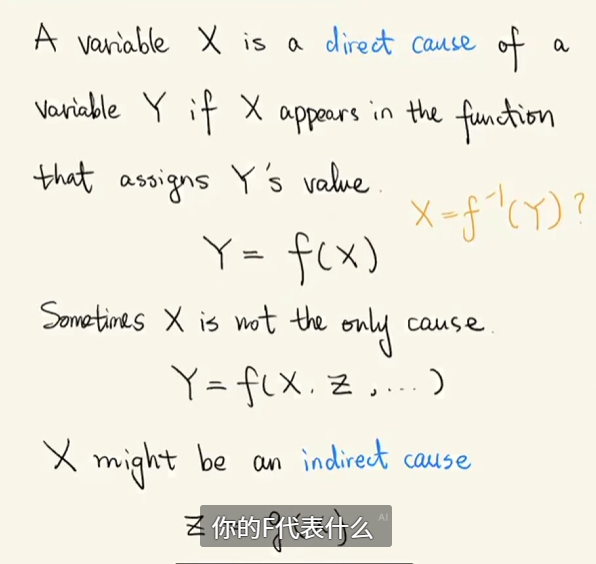 A variable X is a direct cause of a
variable Y if X appears in the function
that assigns Y's value.
X = f⁻¹(Y)?
Y = f(X)
Sometimes X is not the only cause.
Y = f(X, Z, ...)
X might be an indirect cause
Z
你的F代表什么
AI